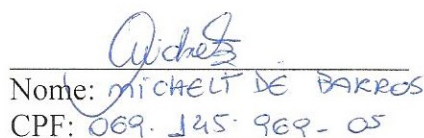 Nome: MICHELI DE BARROS
CPF: 069.145.969-05